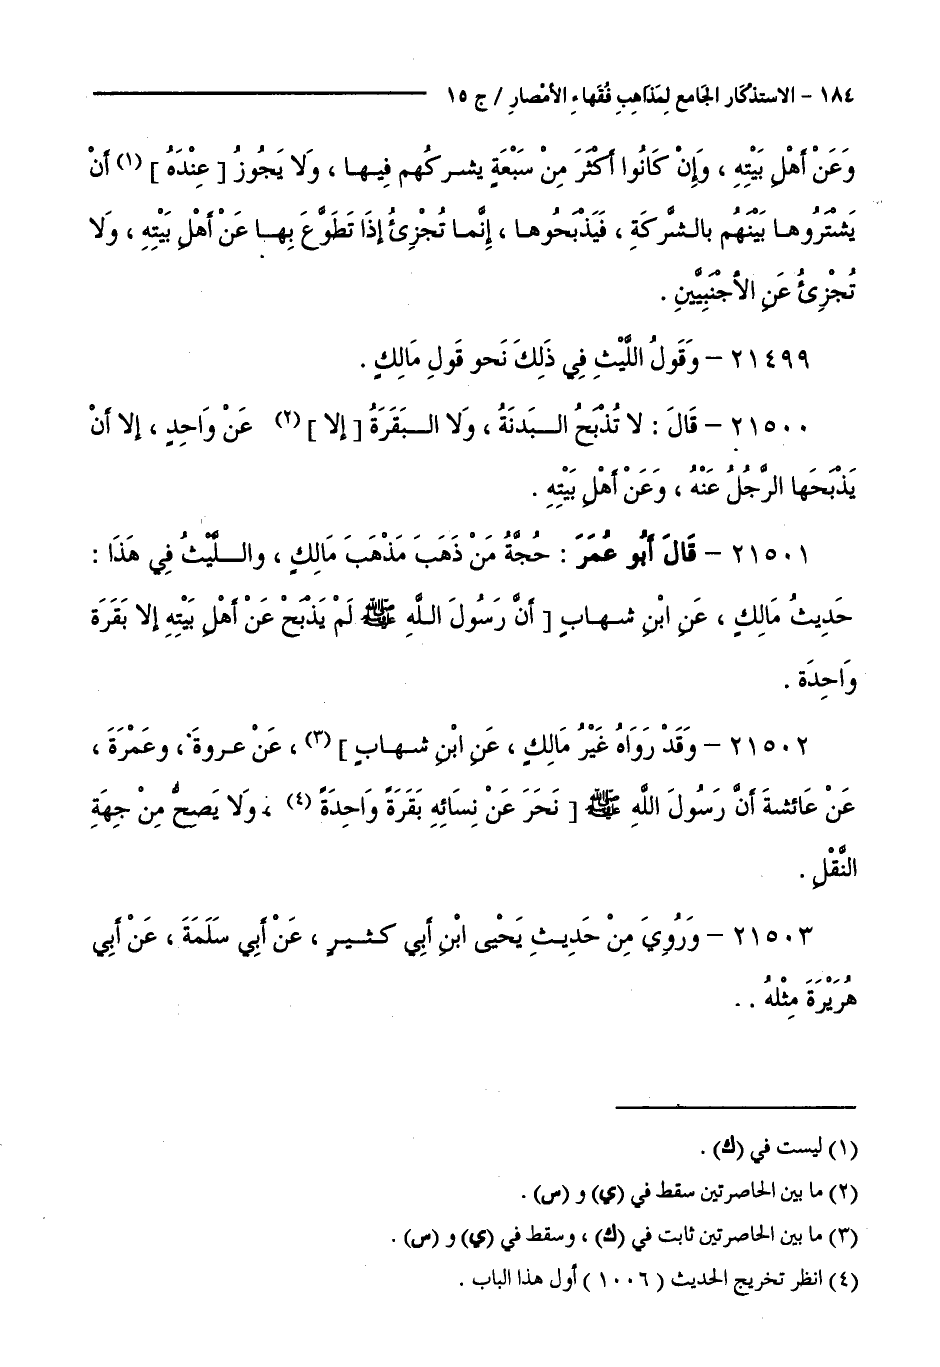 ١٨٤ - الاستذكار الجامع لِمَذاهِبِ فُقَهاءِ الأمْصارِ / ج ١٥
وَعَنْ أهْلِ بَيْتِهِ ، وَإِنْ كَانُوا أكْثَرَ مِنْ سَبْعَةٍ يشركُهم فِيها ، وَلَا يَجُوزُ [ عِنْدَهُ ] (١) أنْ
يَشْتَرُوها بَيْنَهُم بالشَّرْكَةِ ، فَيَذْبَحُوها ، إِنَّما تُجْزِئُ إذَا تَطَوَّعَ بِها عَنْ أهْلِ بَيْتِهِ ، وَلَا
تُجْزِئُ عَنِ الأَجْنَبِيِّينِ .
٢١٤٩٩ - وَقَولُ اللَّيْثِ فِي ذَلِكَ نَحو قَولِ مَالِكٍ .
٢١٥٠٠ - قَالَ : لا تُذْبَحُ البَدنَةُ ، وَلا البَقَرَةُ [ إلا ] (٢) عَنْ وَاحِدٍ ، إلا أنْ
يَذْبَحَها الرَّجُلُ عَنْهُ ، وَعَنْ أهْلِ بَيْتِهِ .
٢١٥٠١ - قَالَ أَبُو عُمَرَ : حُجَّةُ مَنْ ذَهَبَ مَذْهَبَ مَالِكٍ ، واللَّيْثُ فِي هَذَا :
حَدِيثُ مَالِكٍ ، عَنِ ابْنِ شهابٍ [ أنَّ رَسُولَ اللَّهِ ﷺ لَمْ يَذْبَحْ عَنْ أهْلِ بَيْتِهِ إلا بَقَرَة
وَاحِدَة .
٢١٥٠٢ - وَقَدْ رَوَاهُ غَيْرُ مَالِكٍ ، عَنِ ابْنِ شهابٍ ] (٣) ، عَنْ عروةَ ، وعَمْرَةَ ،
عَنْ عَائشةَ أنَّ رَسُولَ اللَّهِ ﷺ [ نَحَرَ عَنْ نِسَائِهِ بَقَرَةً وَاحِدَةً (٤) ، وَلَا يَصِحُّ مِنْ جِهَةِ
النَّقْلِ .
٢١٥٠٣ - وَرُوِيَ مِنْ حَدِيثِ يَحْيى ابْنِ أبِي كثيرٍ ، عَنْ أبِي سَلَمَةَ ، عَنْ أبِي
هُرَيْرَةَ مِثْلهُ . .
(١) ليست في (ك) .
(٢) ما بين الحاصرتين سقط في (ي) و (س) .
(٣) ما بين الحاصرتين ثابت في (ك) ، وسقط في (ي) و (س) .
(٤) انظر تخريج الحديث ( ١٠٠٦ ) أول هذا الباب .